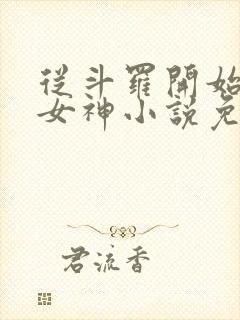 從斗羅開始
女神小說免
君流香